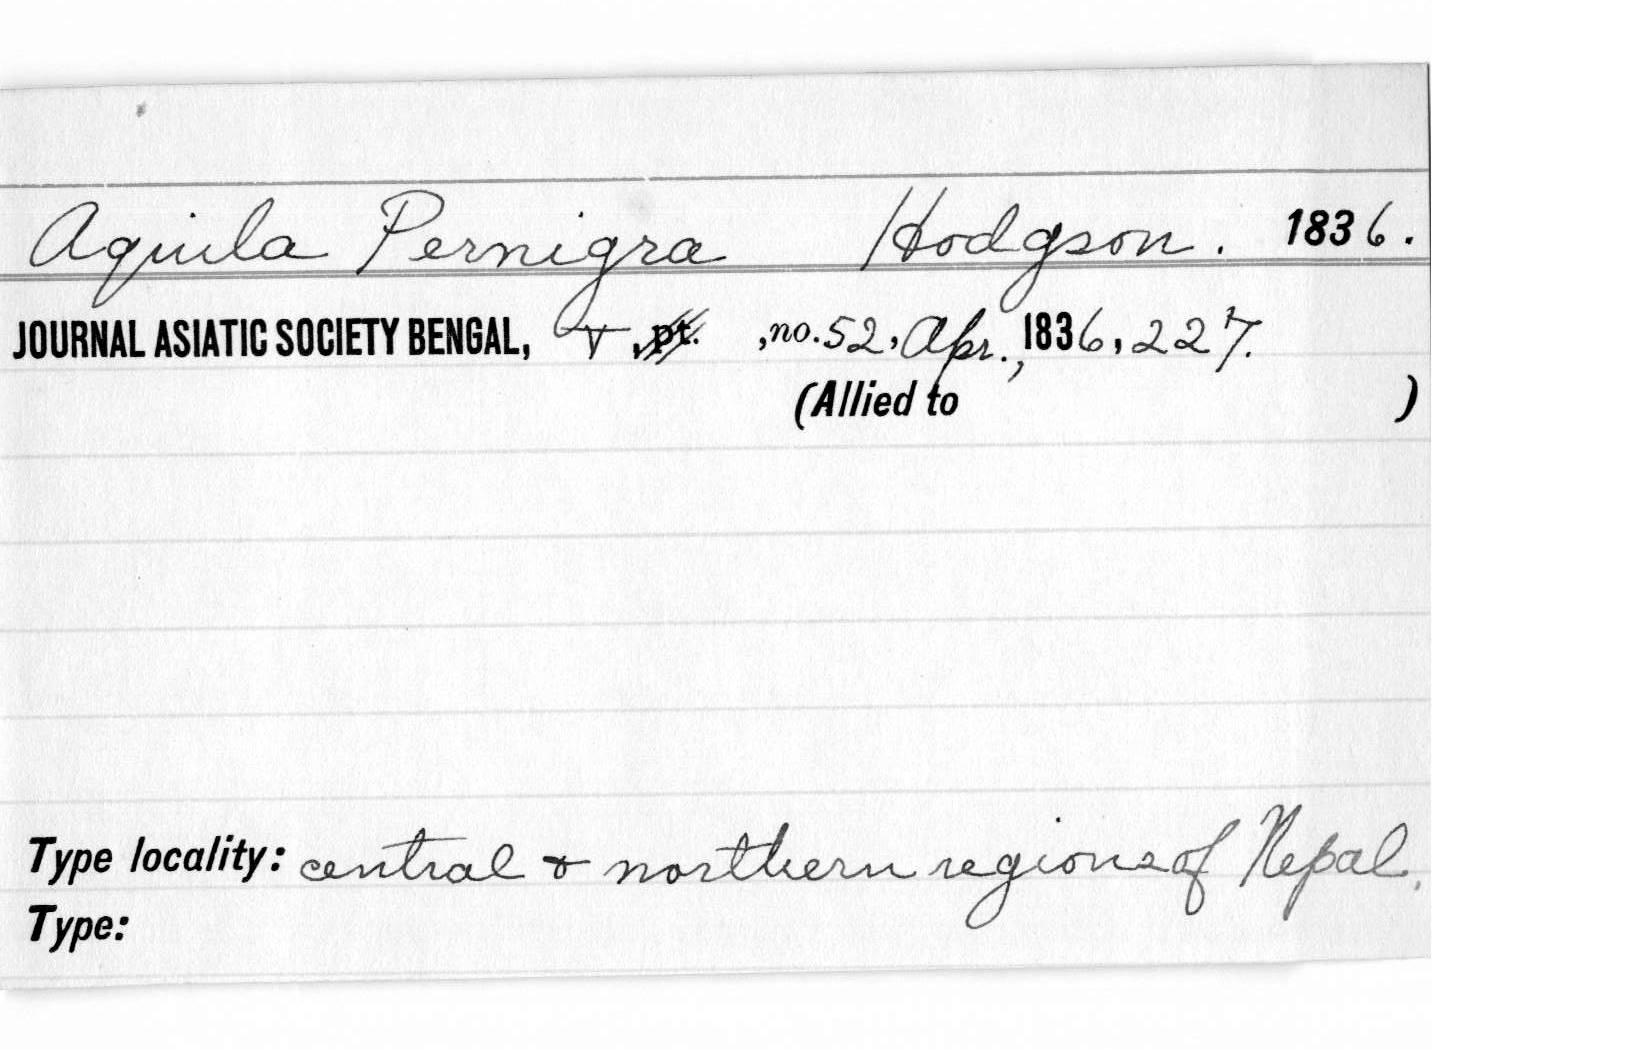 Aquila Pernigra Hodgson. 1836.
JOURNAL ASIATIC SOCIETY BENGAL, V, pt. , no. 52, Apr., 1836, 227.
(Allied to )
Type locality: central & northern regions of Nepal.
Type: